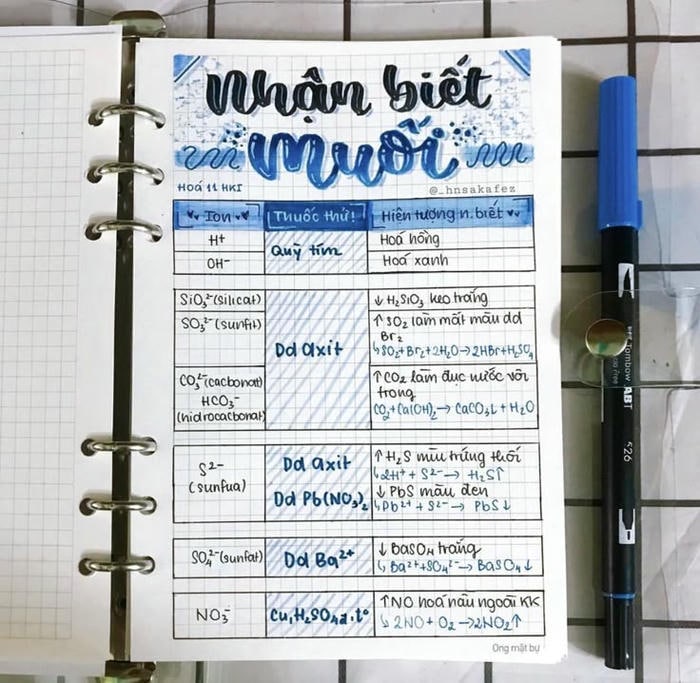 Nhận biết
muối
HOÁ 11 HKI
@_hnsakafez
Ion
Thuốc thử!
Hiện tượng n.biết
H⁺
Quỳ tím
Hoá hồng
OH⁻
Hoá xanh
SiO₃²⁻(silicat)
Dd axit
↓ H₂SiO₃ keo trắng
SO₃²⁻(sunfit)
↑ SO₂ làm mất màu dd
Br₂
↳SO₂+Br₂+2H₂O→2HBr+H₂SO₄
CO₃²⁻(cacbonat)
HCO₃⁻
(hidrocacbonat)
↑CO₂ làm đục nước vôi
trong
CO₂+Ca(OH)₂→ CaCO₃↓+H₂O
S²⁻
(sunfua)
Dd axit
Dd Pb(NO₃)₂
↑H₂S mùi trứng thối
↳2H⁺ + S²⁻→ H₂S↑
↓ PbS màu đen
↳Pb²⁺ + S²⁻→ PbS↓
SO₄²⁻(sunfat)
Dd Ba²⁺
↓ BaSO₄ trắng
↳ Ba²⁺+SO₄²⁻→ BaSO₄↓
NO₃⁻
Cu,H₂SO₄,t°
↑NO hoá nâu ngoài KK
↳ 2NO + O₂→2NO₂↑
Ong mật bự
Tombow ABT
526